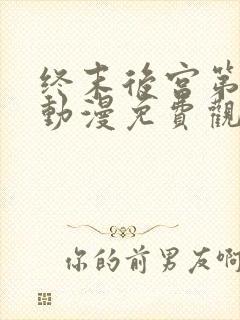 终末後宫第
動漫免費觀
你的前男友啊